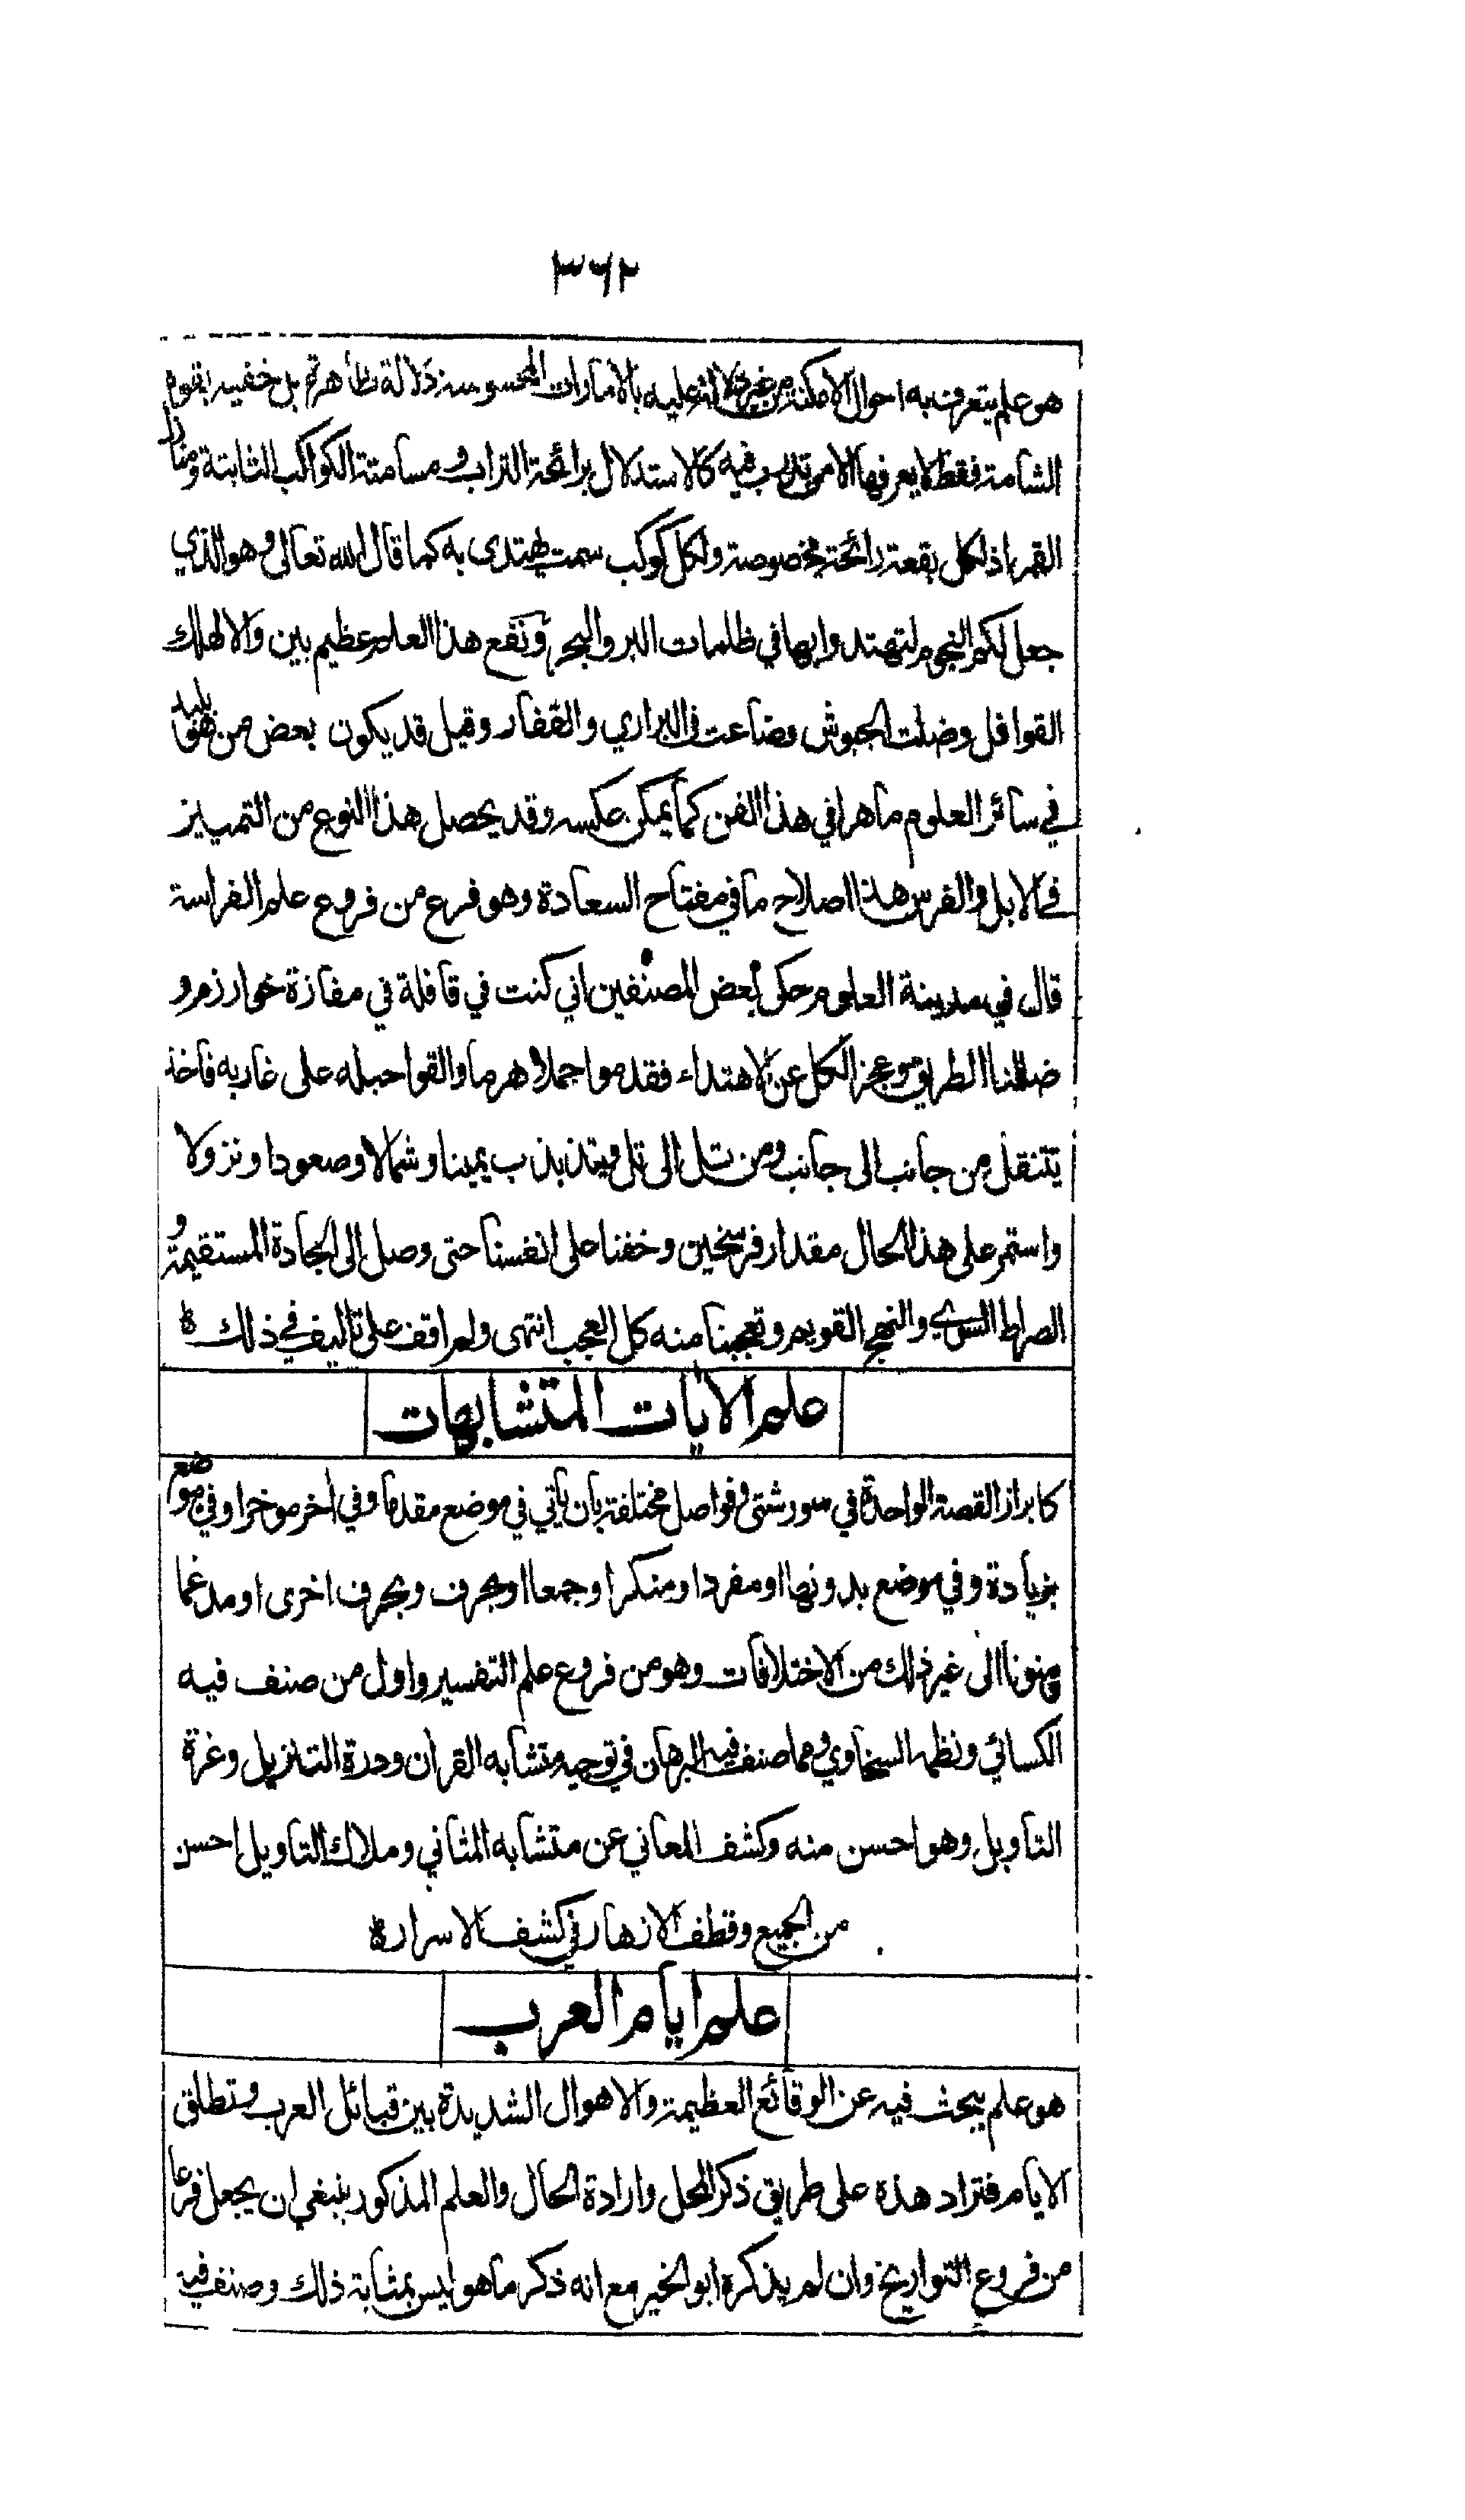 ٣٦٢
هو علم يتعرف به احوال الامكنة من غير دلالة عليه بالامارات المحسوسة دلالة ظاهرة بل خفية بقوة
الشامة فقط لا يعرفها الا من تدرب فيه كالاستدلال برائحة التراب و مسامتة الكواكب الثابتة ومنازل
القمر اذ لكل بقعة رائحة مخصوصة ولكل كوكب سمت يهتدى به كما قال الله تعالى وهو الذي
جعل لكم النجوم لتهتدوا بها في ظلمات البر والبحر ونفع هذا العلم عظيم بين والا لهلك
القوافل وضلت الجيوش وضاعت في البراري والقفار وقيل قد يكون بعض من هو بليد
في سائر العلوم ماهرا في هذا الفن كما يمكن عكسه وقد يحصل هذا النوع من التمييز
في الابل والفرس هذا اصلاح ما في مفتاح السعادة وهو فرع من فروع علم الفراسة
قال في مدينة العلوم حكى بعض المصنفين اني كنت في قافلة في مفازة خوارزم و
ضللنا الطريق وعجز الكل عن الاهتداء فقدموا جملا هرما والقوا حبله على غاربه فاخذ
يتنقل من جانب الى جانب ومن تل الى تل ويتذبذب يمينا وشمالا وصعودا ونزولا
واستمر على هذا الحال مقدار فرسخين وخفنا على انفسنا حتى وصل الى الجادة المستقيمة و
الصراط السوي والنهج القويم وتعجبنا منه كل العجب انتهى ولم اقف على تاليف في ذلك
علم الايات المتشابهات
كابراز القصة الواحدة في سور شتى وفواصل مختلفة بان ياتي في موضع مقدما وفي اخر موخرا وفي موضع
بزيادة وفي موضع بدونها او مفردا ومنكرا وجمعا او بحرف وبحرف اخرى او مدغما
ومنونا الى غير ذلك من الاختلافات وهو من فروع علم التفسير واول من صنف فيه
الكسائي ونظمه السخاوي ومما صنف فيه البرهان في توجيه متشابه القران ودرة التنزيل وغرة
التاويل وهو احسن منه وكشف المعاني عن متشابه المثاني وملاك التاويل احسن
من الجميع وقطف الازهار في كشف الاسرار
علم ايام العرب
هو علم يبحث فيه عن الوقائع العظيمة والاهوال الشديدة بين قبائل العرب وتطلق
الايام فتراد هذه على طريق ذكر المحل وارادة الحال والعلم المذكور ينبغي ان يجعل فرعا
من فروع التواريخ وان لم يذكره ابو الخير مع انه ذكر ما هو ليس بمثابة ذلك وصنف فيه